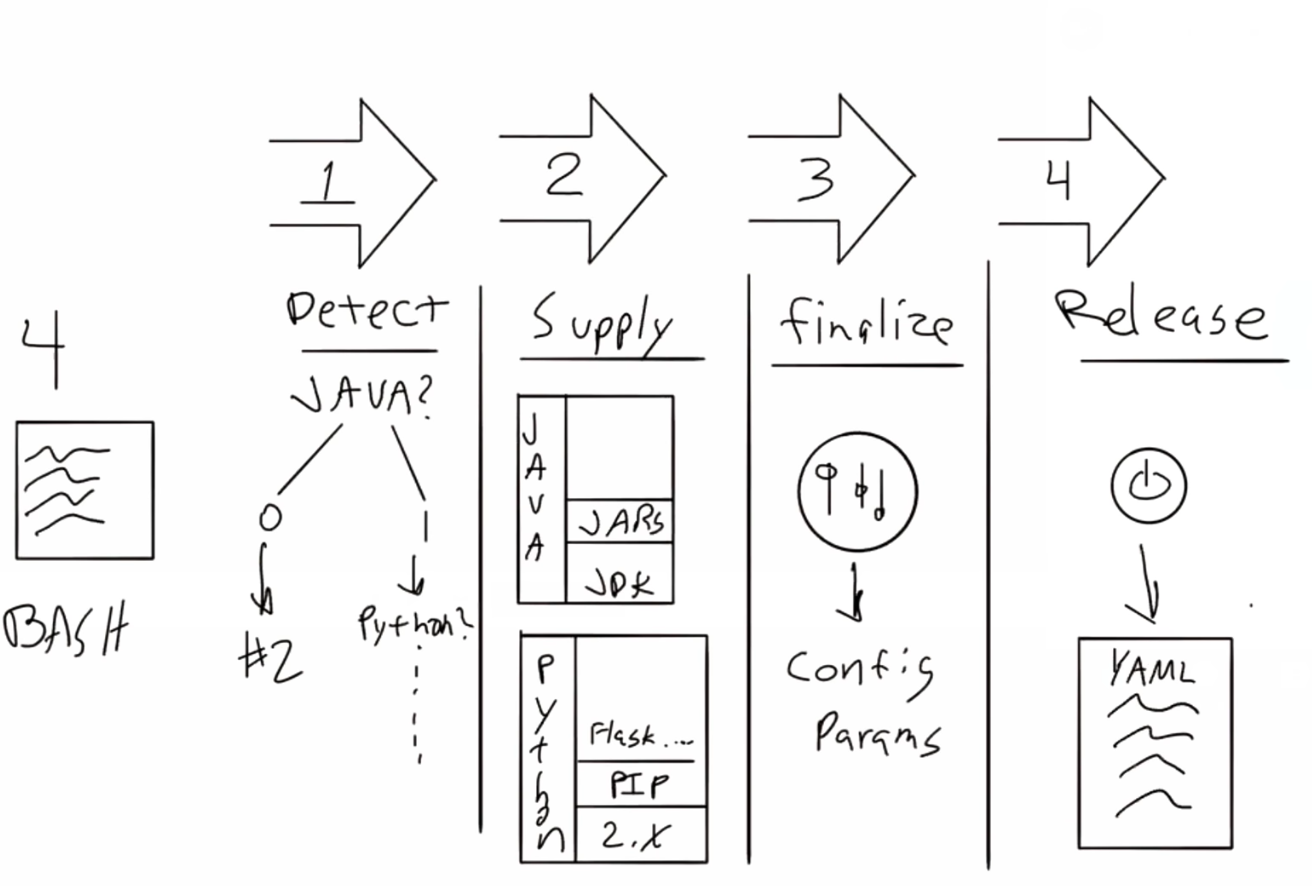 4
BASH
1
Detect
JAVA?
0
#2
1
Python?
2
Supply
JAVA
JARs
JDK
Python
Flask....
PIP
2.X
3
finalize
Config
Params
4
Release
YAML